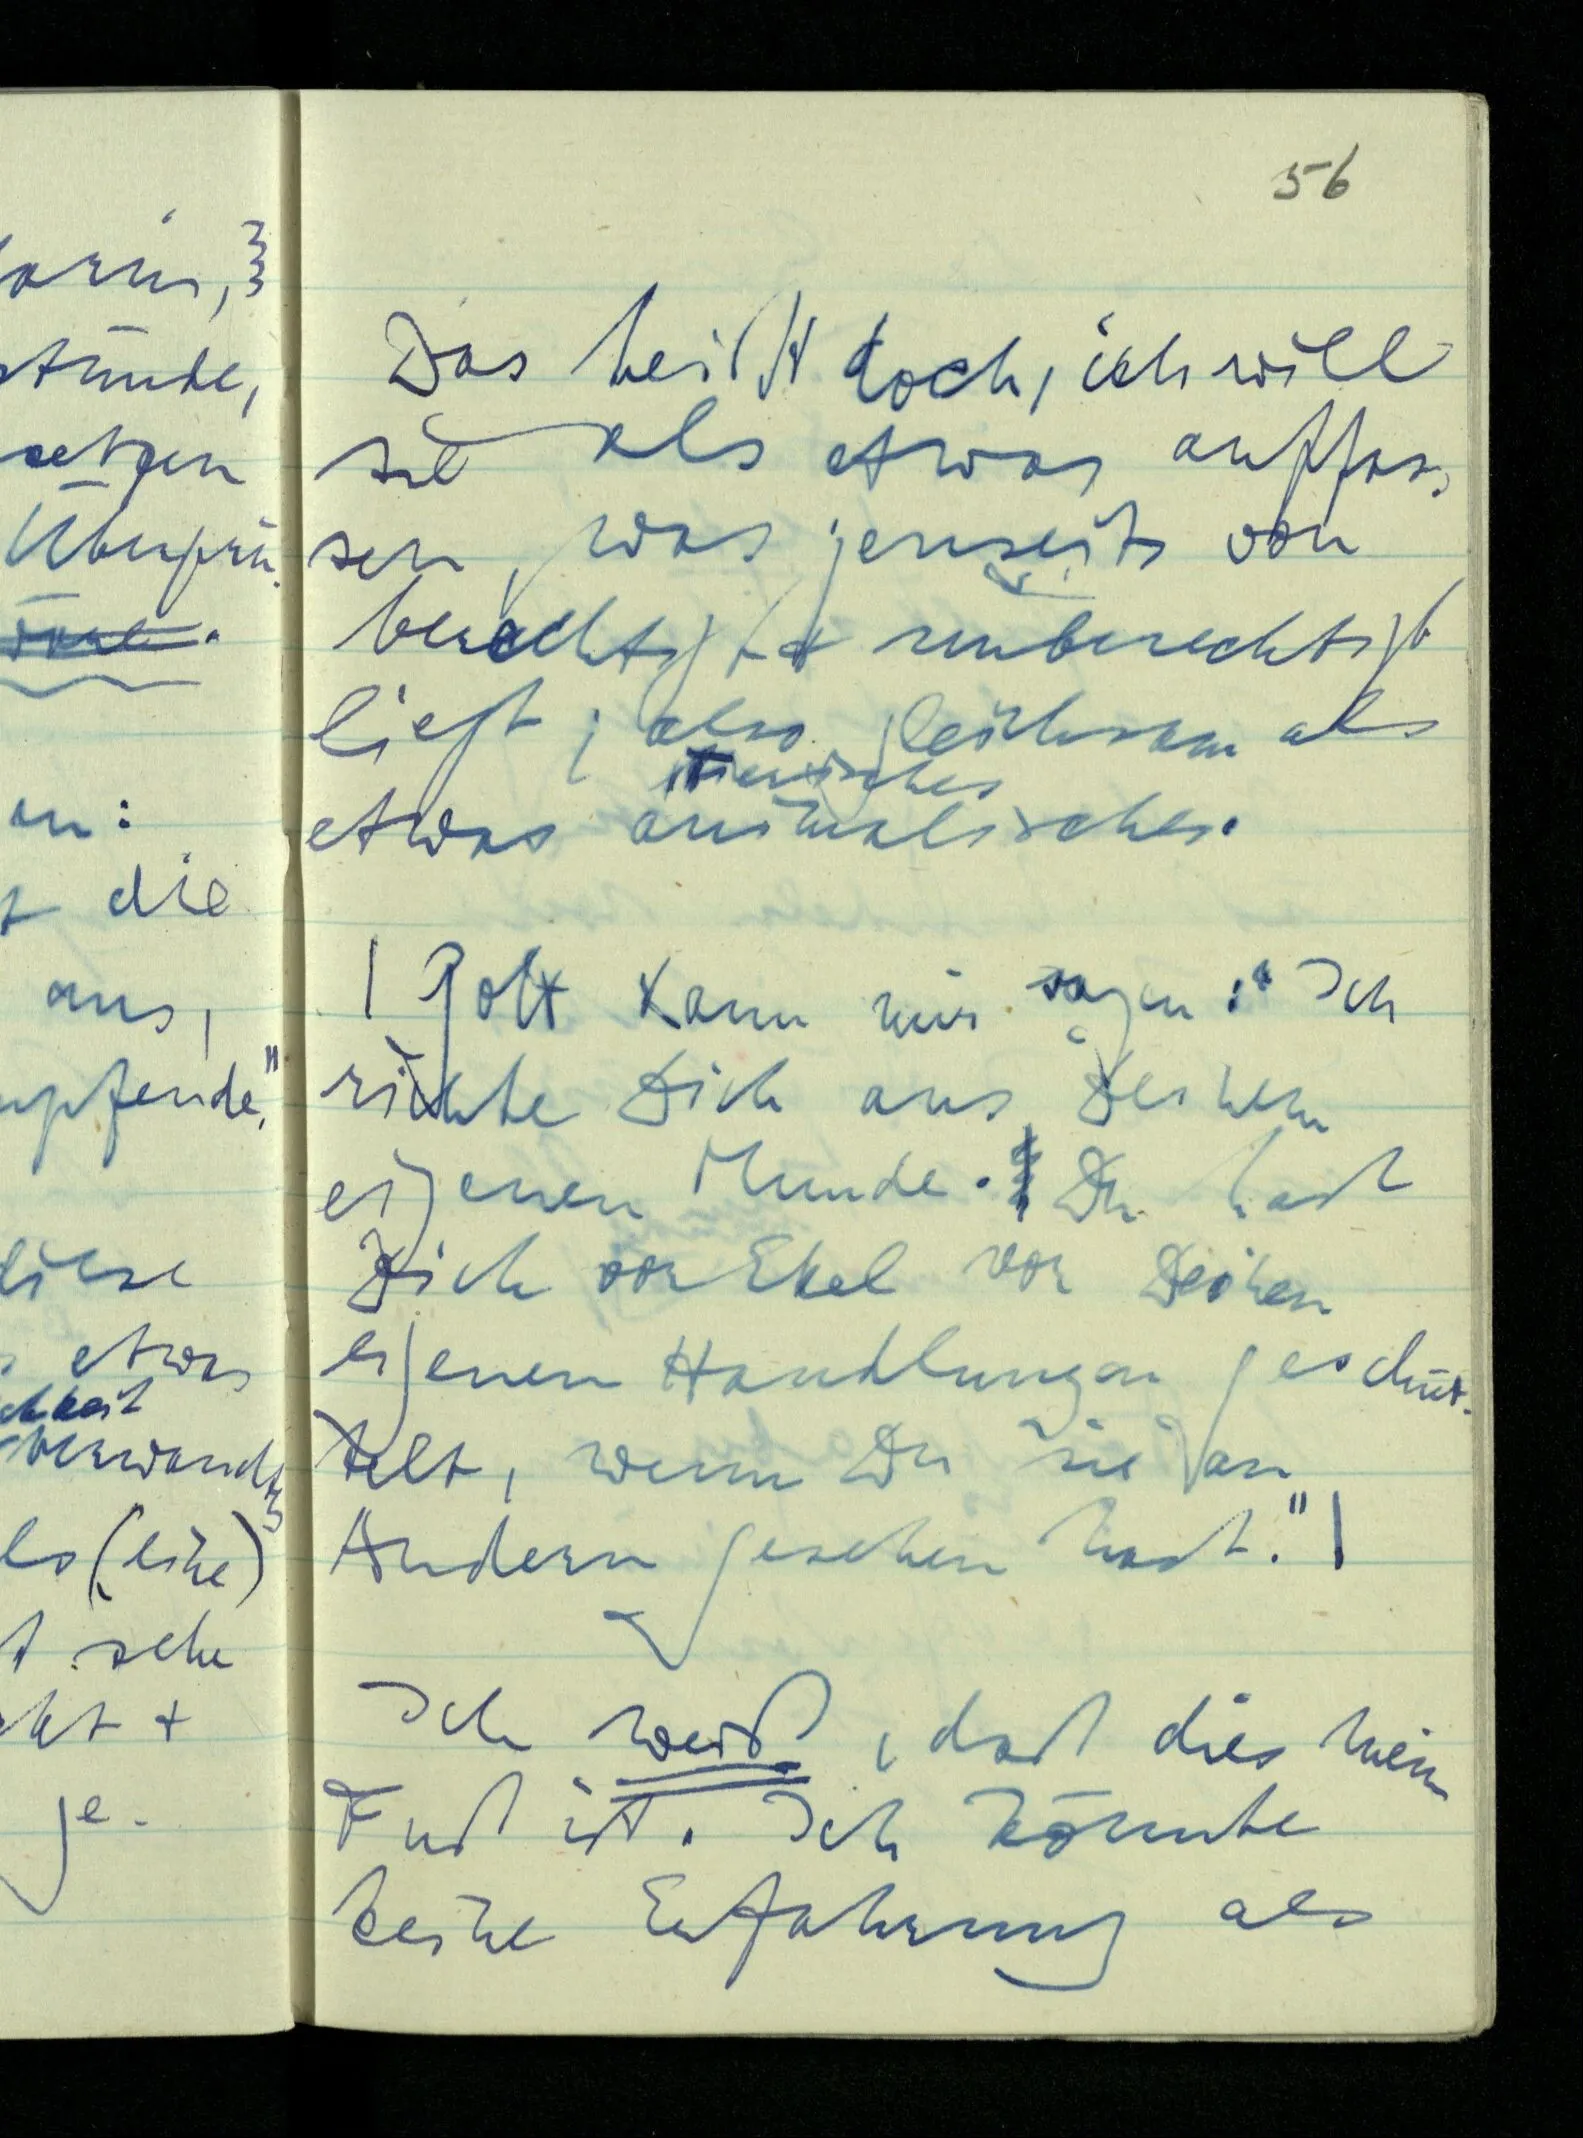 arin,
stünde,
setzen
Überprü-
wäre.
an:
t die
aus,
mpfende."
diese
etwas
chkeit
verwandt
ls (eine)
t sehe
cht +
je.
56
Das heißt doch, ich will
sie als etwas auffas-
sen, was jenseits von
berechtigt + unberechtigt
liegt; also gleichsam als
tierisches
etwas animalisches.
| Gott kann mir sagen: "Ich
richte Dich aus Deinem
eigenen Munde. Du hast
Dich vor Ekel vor Deinen
eigenen Handlungen geschüt-
telt, wenn Du sie an
Andern gesehen hast." |
Ich weiß, daß dies mein
Fuß ist. Ich könnte
keine Erfahrung als